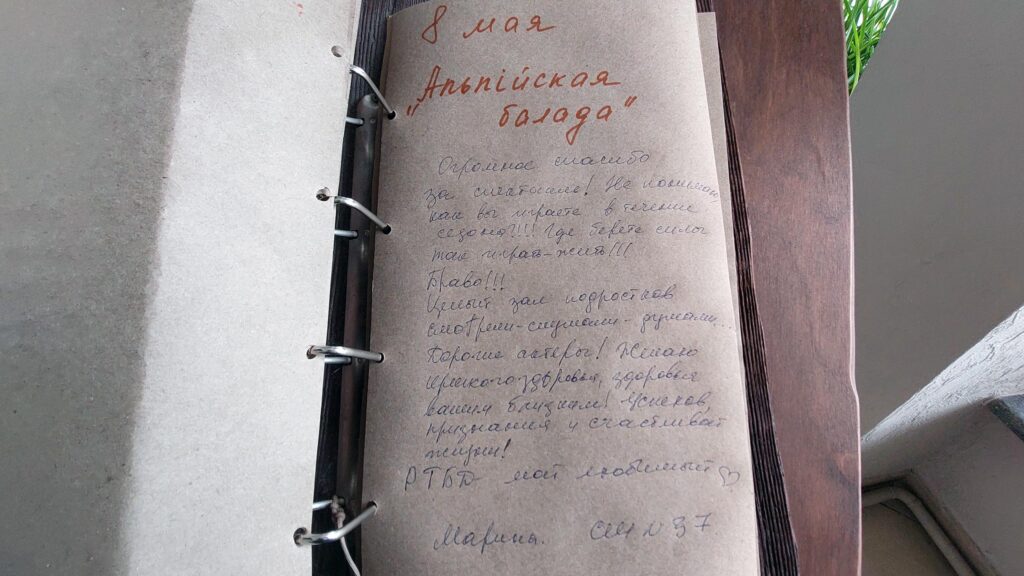 8 мая
„Альпійская
балада"
Огромное спасибо
за спектакль! Не понимаю
как вы играете в течение
сезона!!!! Где берете силы
так играть-жить!!!
Браво!!!
Целый зал подростков
смотрели-слушали-думали...
Дорогие актеры! Желаю
крепкого здоровья, здоровья
вашим близким! Успехов,
признания и счастливой
жизни!
РТБД мой любимый ♡
Марина. СШ №37.